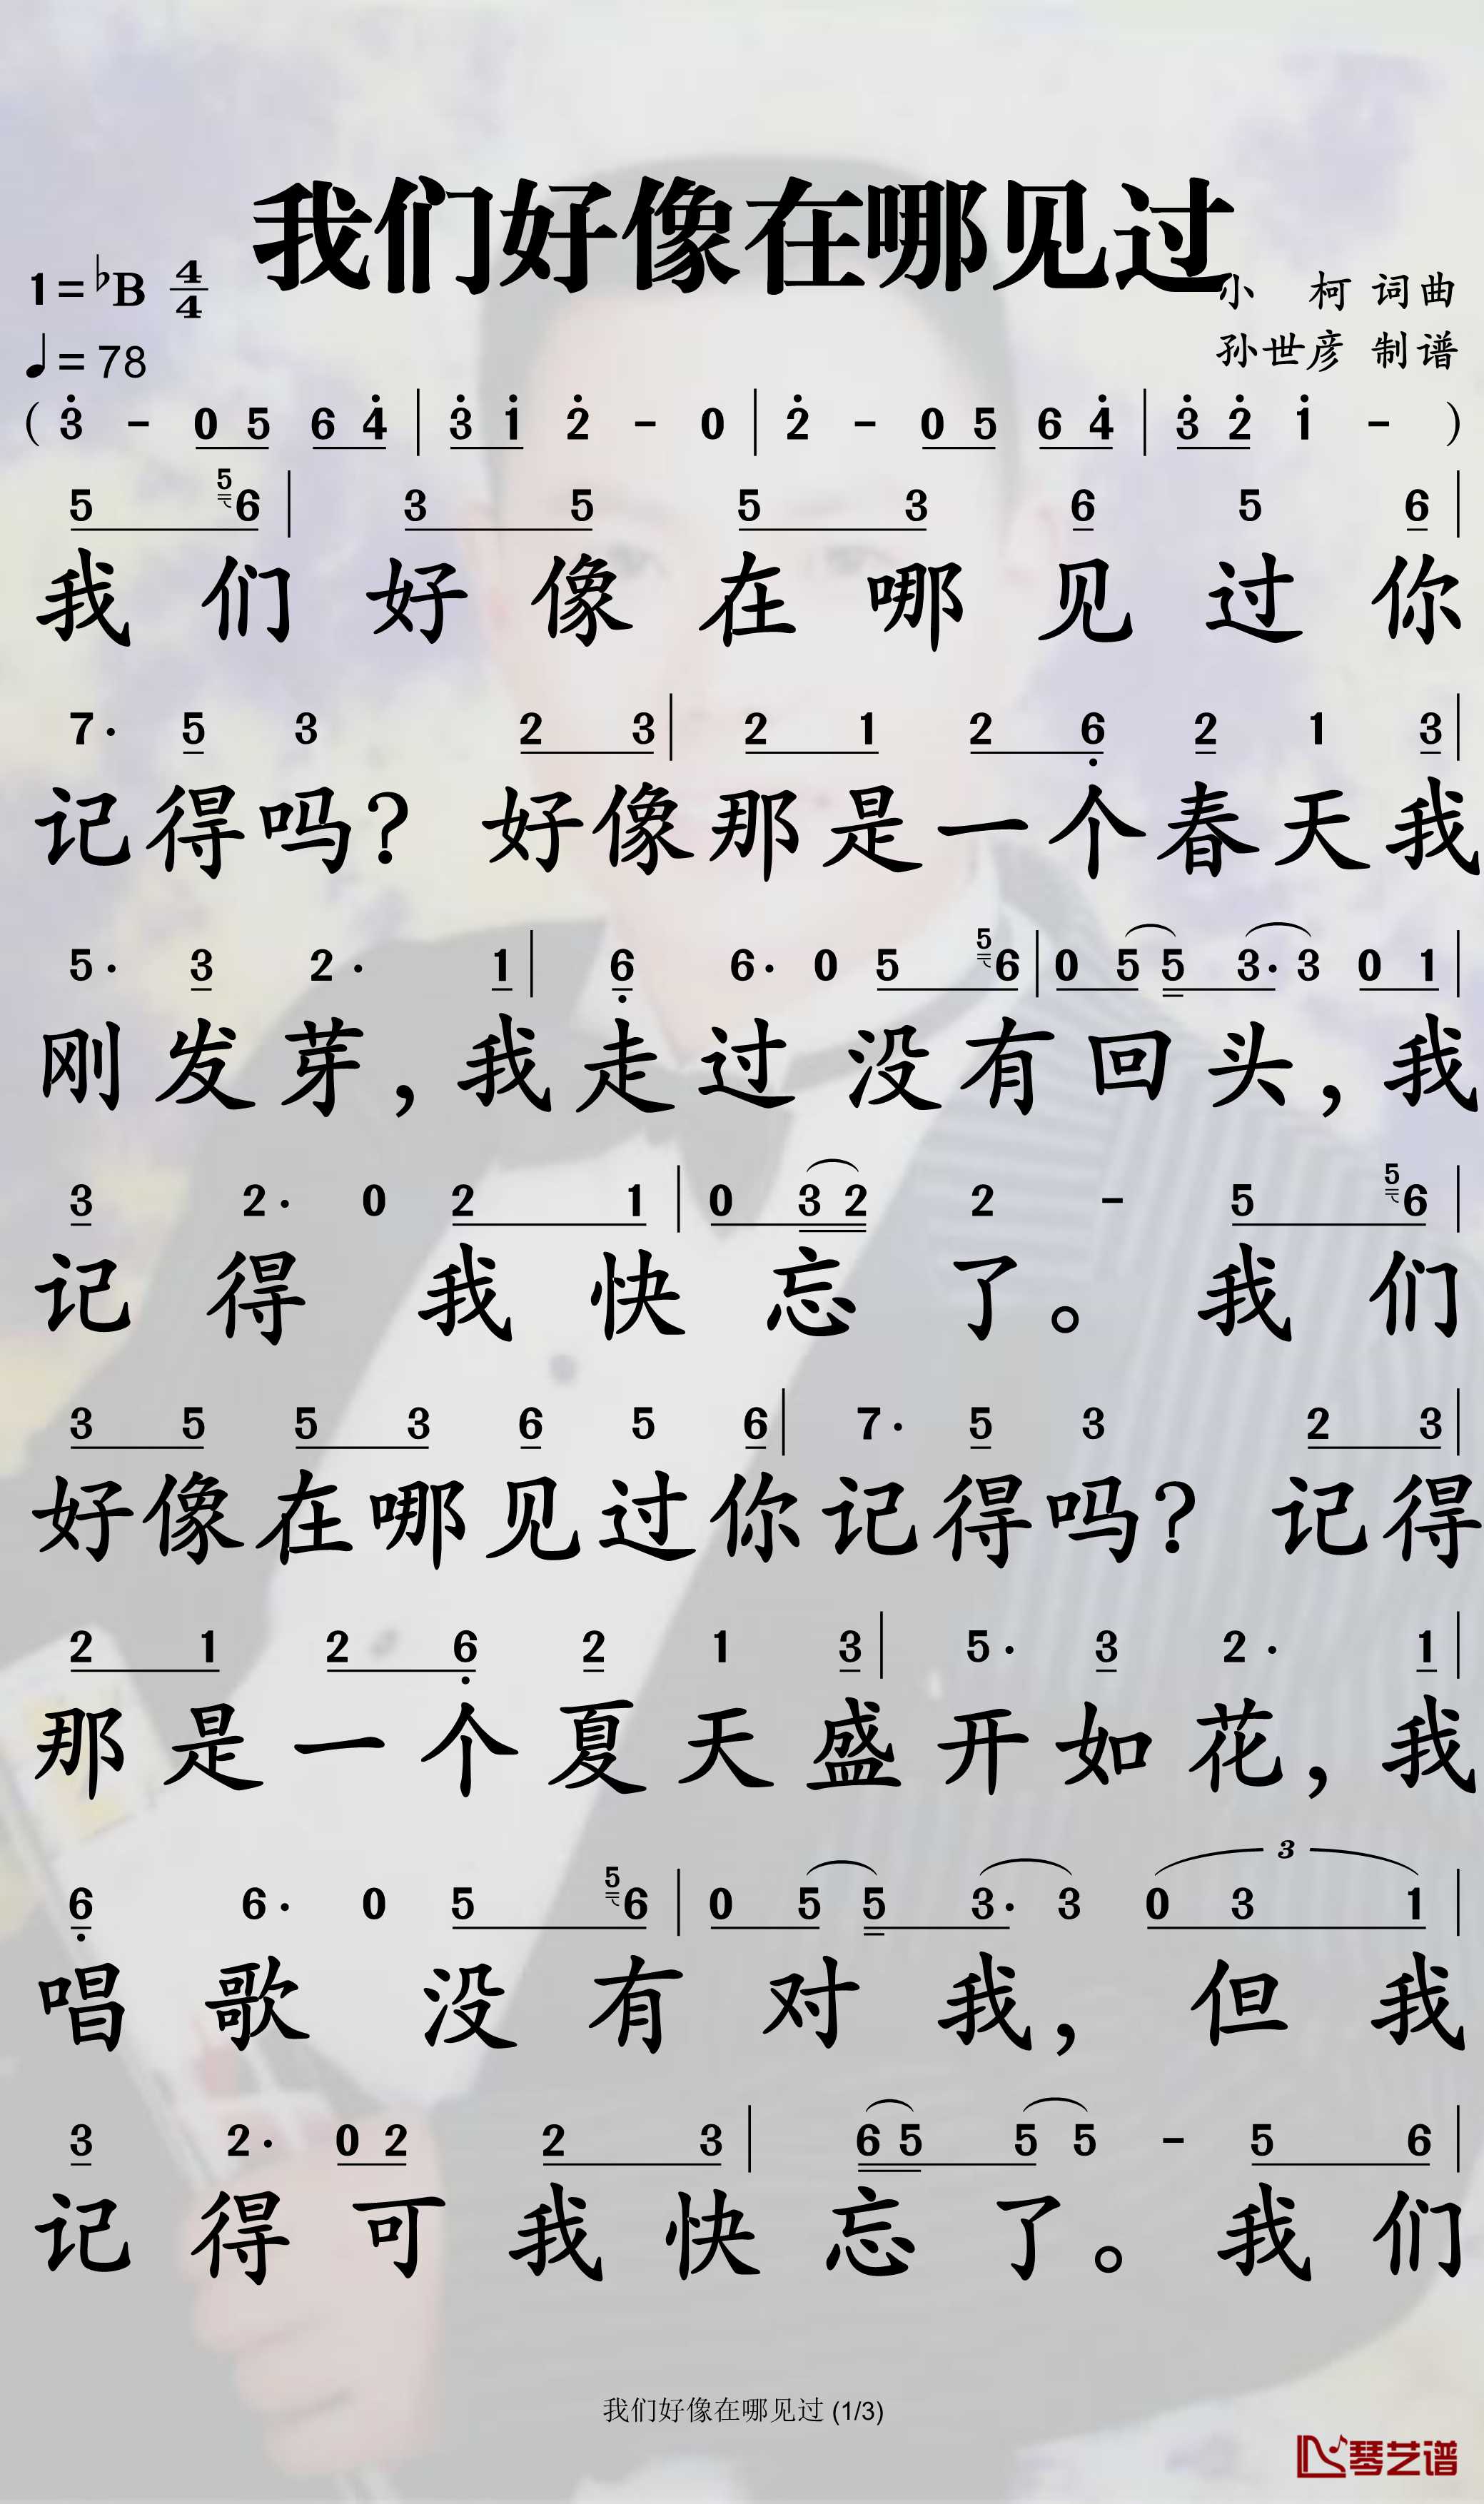 我们好像在哪见过
1=♭B 4/4
♩=78
小 柯 词曲
孙世彦 制谱
( 3̇ - 0 5 6 4̇ | 3̇ 1̇ 2̇ - 0 | 2̇ - 0 5 6 4̇ | 3̇ 2̇ 1̇ - )
5 5 6 | 3 5 5 3 6 5 6 |
我 们 好 像 在 哪 见 过 你
7· 5 3 2 3 | 2 1 2 6̣ 2 1 3 |
记得吗? 好像那是一个春天我
5· 3 2· 1 | 6̣ 6· 0 5 5 6 | 0 5 5 3· 3 0 1 |
刚发芽,我走过没有回头,我
3 2· 0 2 1 | 0 3 2 2 - 5 5 6 |
记 得 我 快 忘 了。 我 们
3 5 5 3 6 5 6 | 7· 5 3 2 3 |
好像在哪见过你记得吗? 记得
2 1 2 6̣ 2 1 3 | 5· 3 2· 1 |
那是一个夏天盛开如花,我
6̣ 6· 0 5 5 6 | 0 5 5 3· 3 3 0 3 1 |
唱 歌 没 有 对 我, 但 我
3 2· 0 2 2 3 | 6 5 5 5 - 5 6 |
记 得 可 我 快 忘 了。 我 们
我们好像在哪见过 (1/3)
琴艺谱